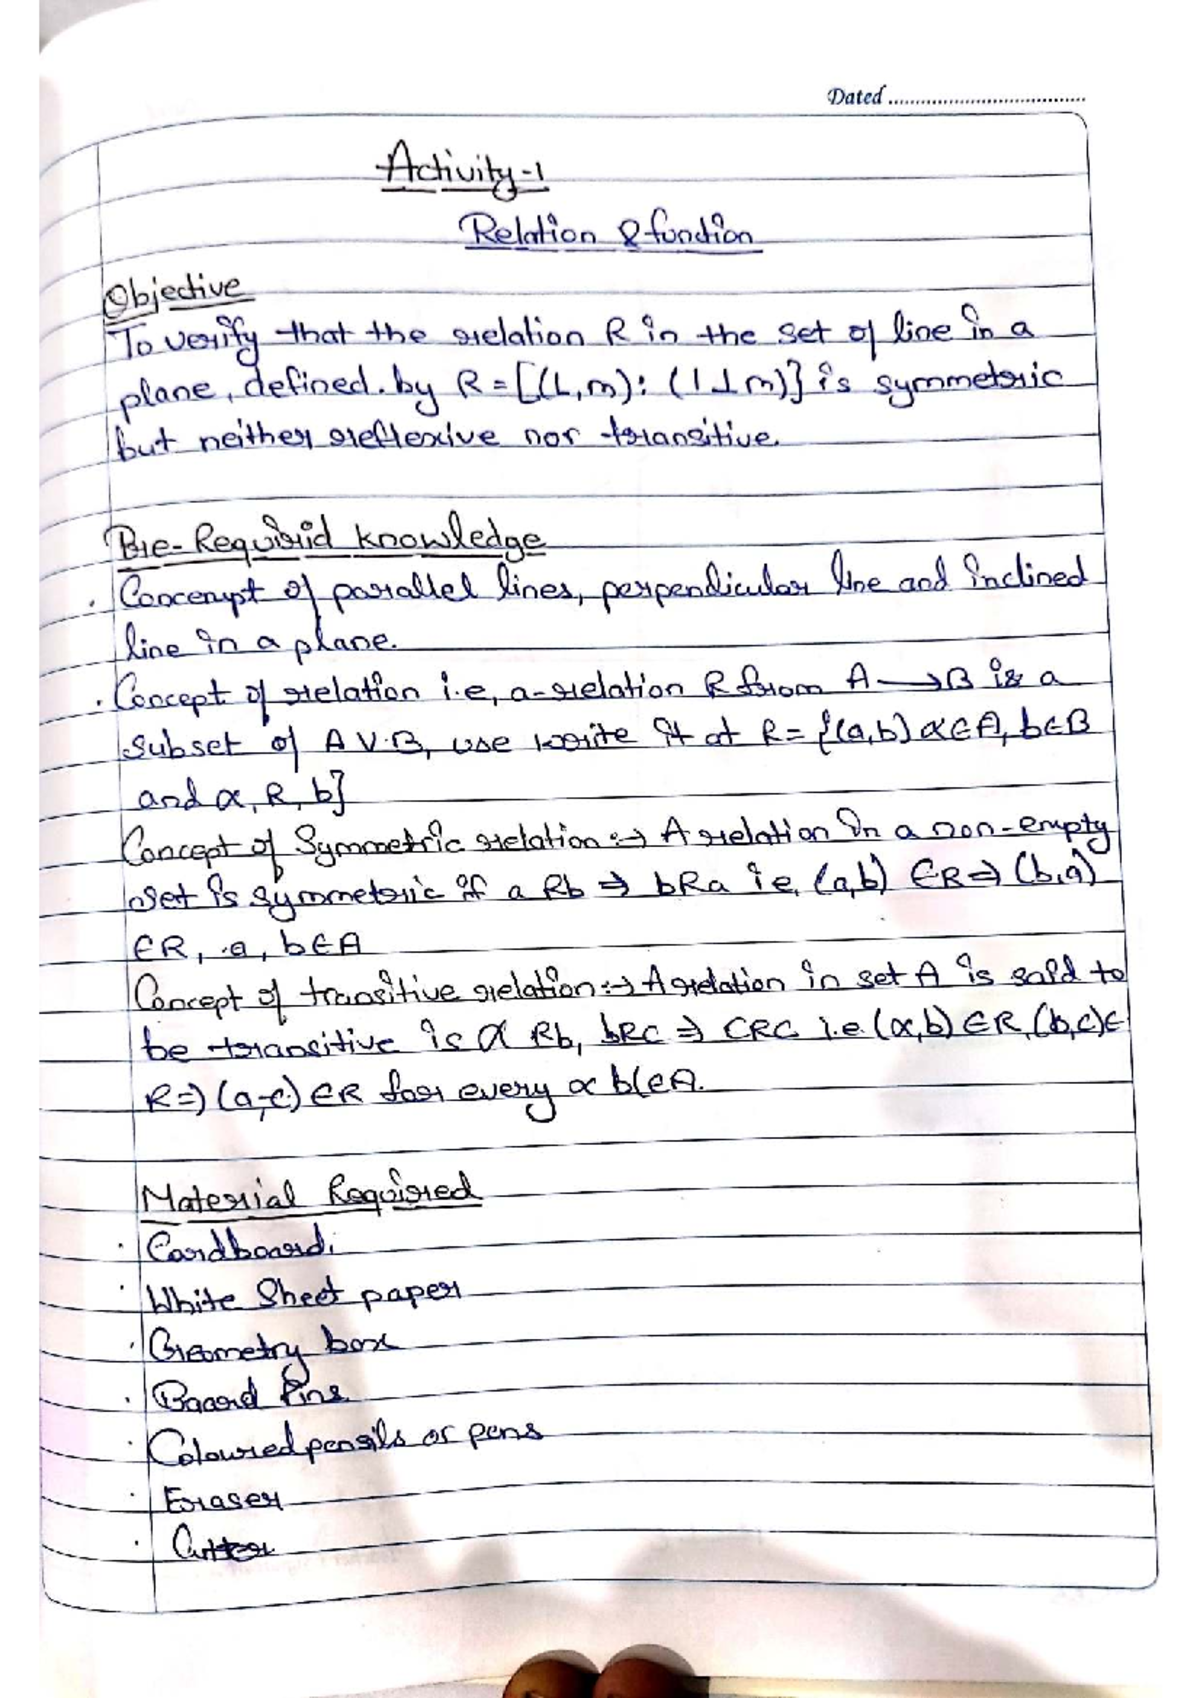 Dated
Activity-1
Relation & function
Objective
To verify that the relation R in the set of line in a
plane, defined by R = [(L, m): (l ⊥ m)} is symmetric
but neither reflexive nor transitive.
Pre-Requirid knowledge
Concerpt of parallel lines, perpendicular line and inclined
line in a plane.
Concept of relation i.e, a-relation R from A → B is a
subset of A V.B, use write it at R = {(a,b) α∈A, b∈B
and α, R, b}
Concept of Symmetric relation :→ A relation in a non-empty
set is symmetric if a Rb ⇒ bRa i.e, (a,b) ∈R ⇒ (b,a)
∈R, a, b∈A
Concept of transitive relation :→ A relation in set A is said to
be transitive is α Rb, bRC ⇒ CRC i.e. (α,b) ∈R, (b,c)∈
R ⇒ (a,c) ∈R for every α b(∈A.
Material Required
· Cardboard.
· White Sheet paper
· Geometry box
· Board Pins
· Coloured pensils or pens
· Eraser
· Cutter